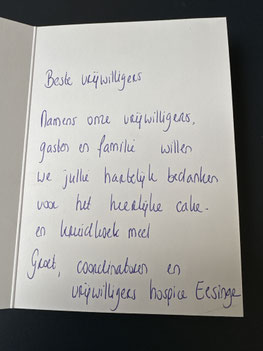 Beste vrijwilligers
Namens onze vrijwilligers,
gasten en familie willen
we jullie hartelijk bedanken
voor het heerlijke cake-
en kruidkoek meel
Groet, coordinatoren en
vrijwilligers hospice Eesinge